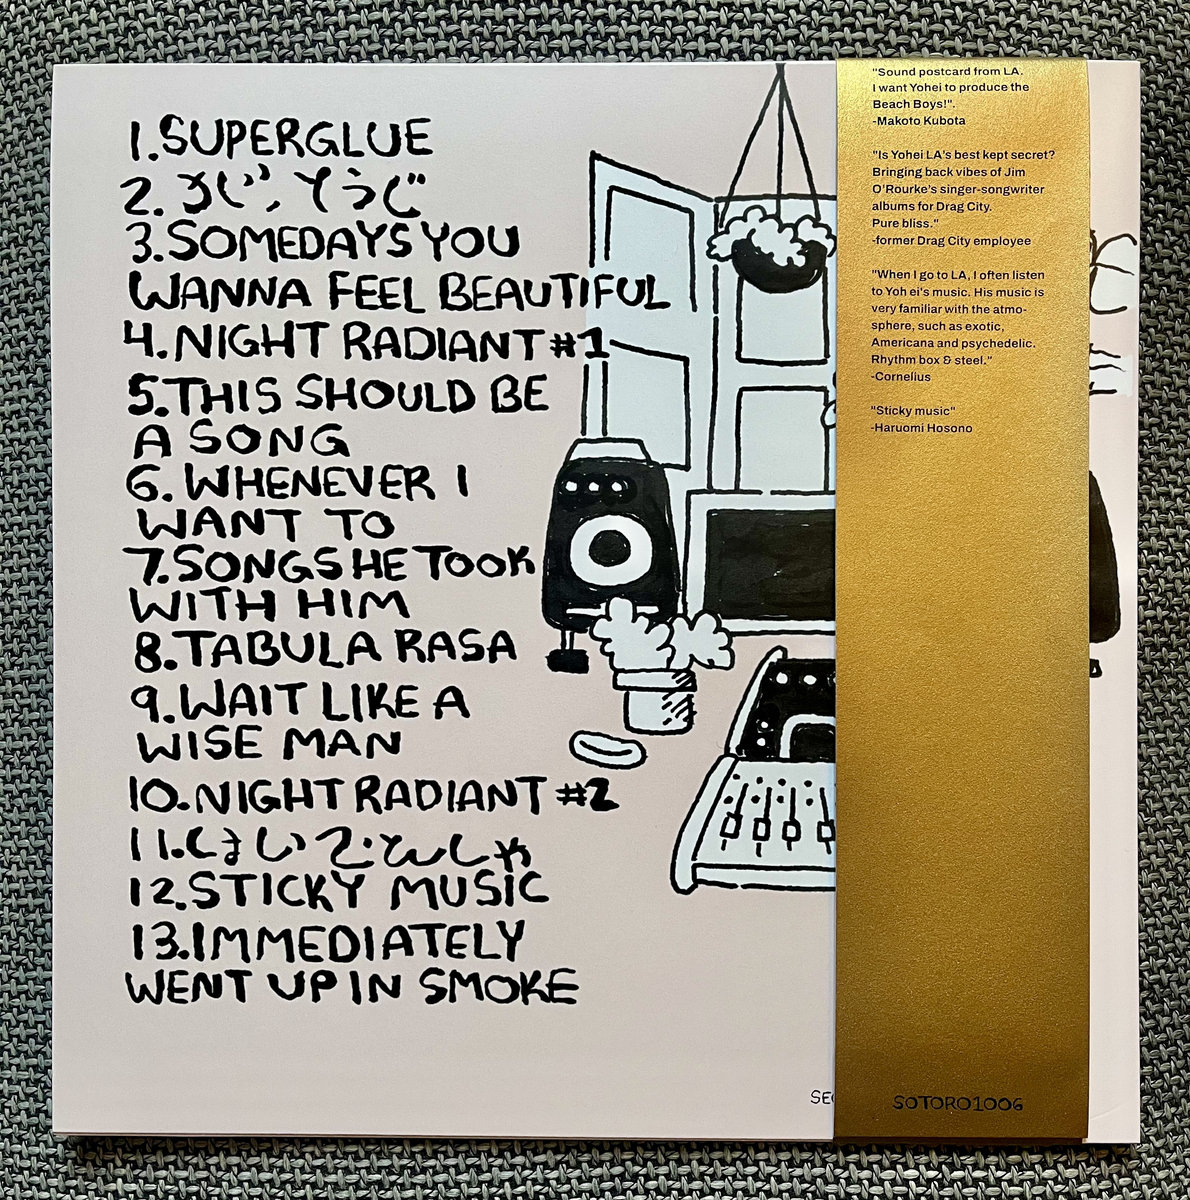 1.SUPERGLUE
2.
3.SOMEDAYS YOU
WANNA FEEL BEAUTIFUL
4.NIGHT RADIANT #1
5.THIS SHOULD BE
A SONG
6.WHENEVER I
WANT TO
7.SONGS HE TOOK
WITH HIM
8.TABULA RASA
9.WAIT LIKE A
WISE MAN
10.NIGHT RADIANT #2
11.しまいでんしゃ
12.STICKY MUSIC
13.IMMEDIATELY
WENT UP IN SMOKE
"Sound postcard from LA.
I want Yohei to produce the
Beach Boys!".
-Makoto Kubota
"Is Yohei LA's best kept secret?
Bringing back vibes of Jim
O'Rourke's singer-songwriter
albums for Drag City.
Pure bliss."
-former Drag City employee
"When I go to LA, I often listen
to Yoh ei's music. His music is
very familiar with the atmo-
sphere, such as exotic,
Americana and psychedelic.
Rhythm box & steel."
-Cornelius
"Sticky music"
-Haruomi Hosono
SOTORO1006